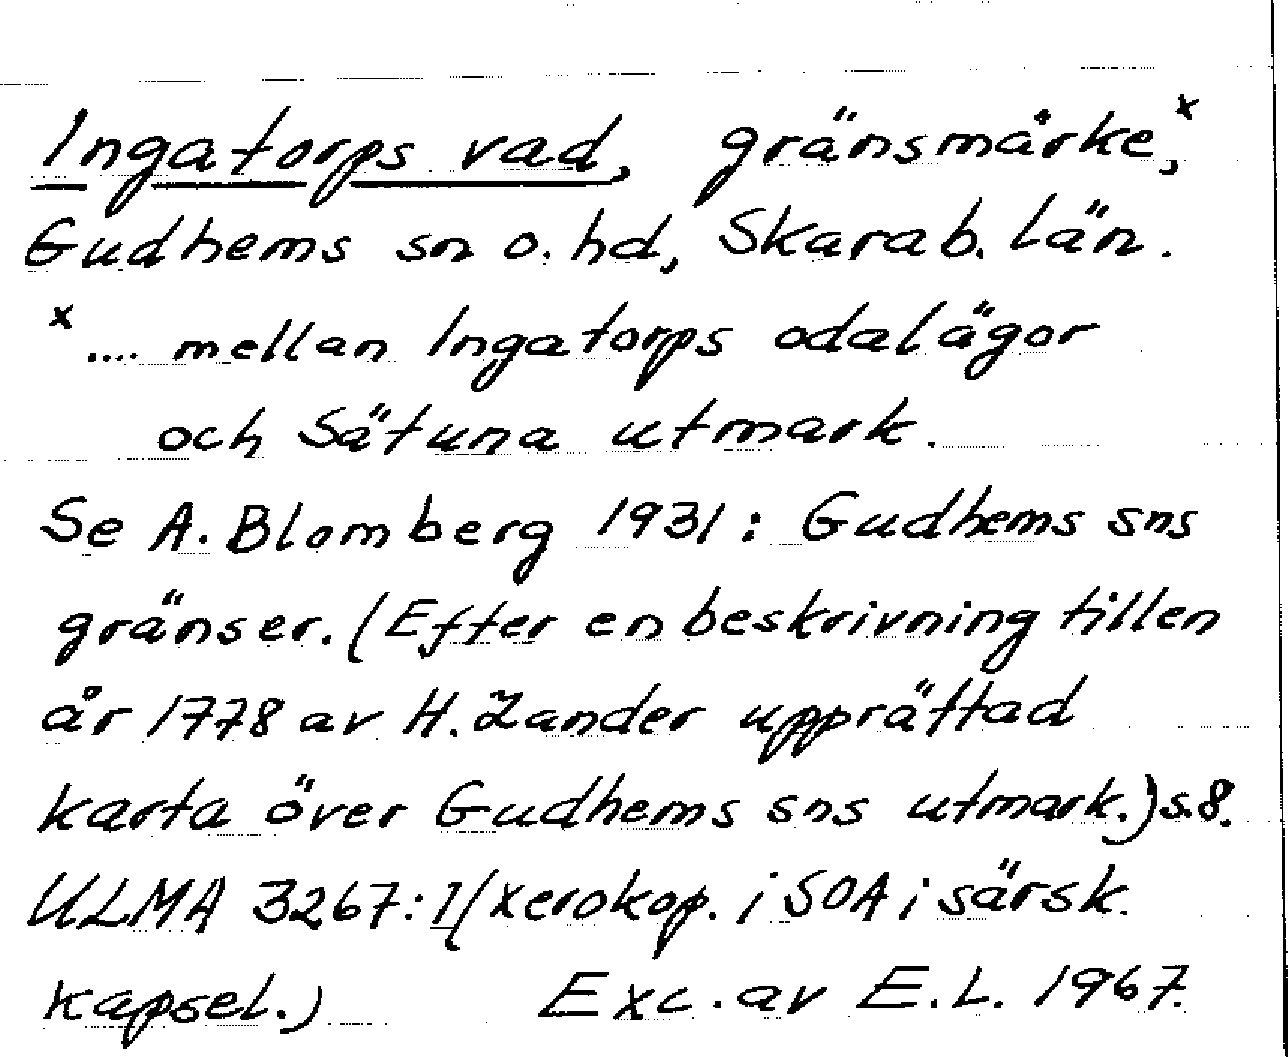 Ingatorps vad, gränsmärke,x
Gudhems sn o. hd, Skarab. län.
x .... mellan Ingatorps odalägor
och Sätuna utmark.
Se A. Blomberg 1931 : Gudhems sns
gränser. (Efter en beskrivning till en
år 1778 av H. Zander upprättad
karta över Gudhems sns utmark.) s. 8.
ULMA 3267:1 (Xerokop. i SOA i särsk.
kapsel.) Exc. av E. L. 1967.